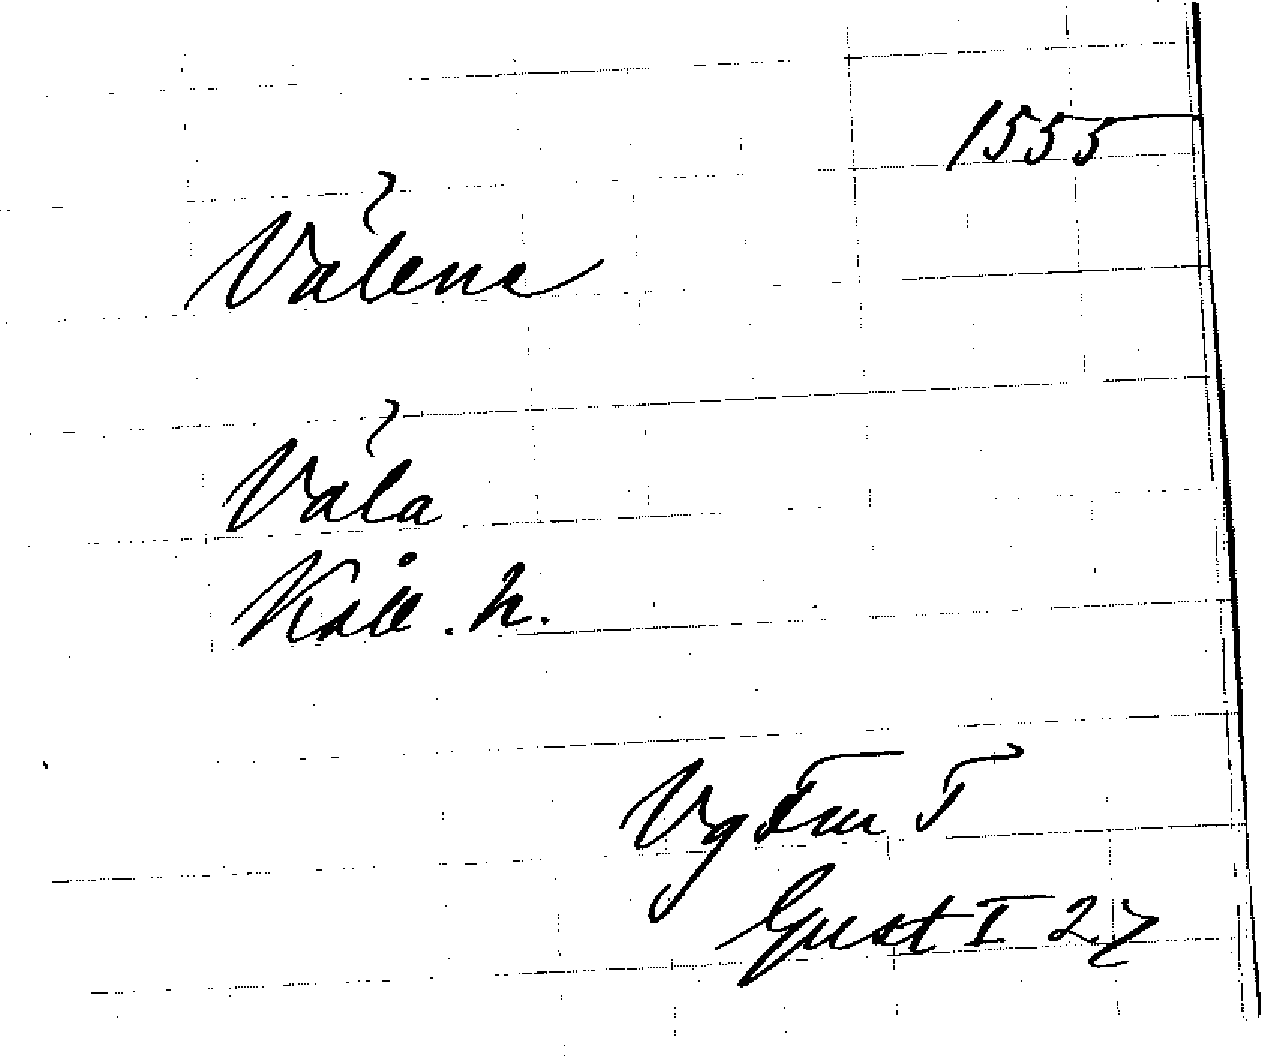 1555
Vålene
Våla
Kåll. h.
Vg Fm T
Gust I 27